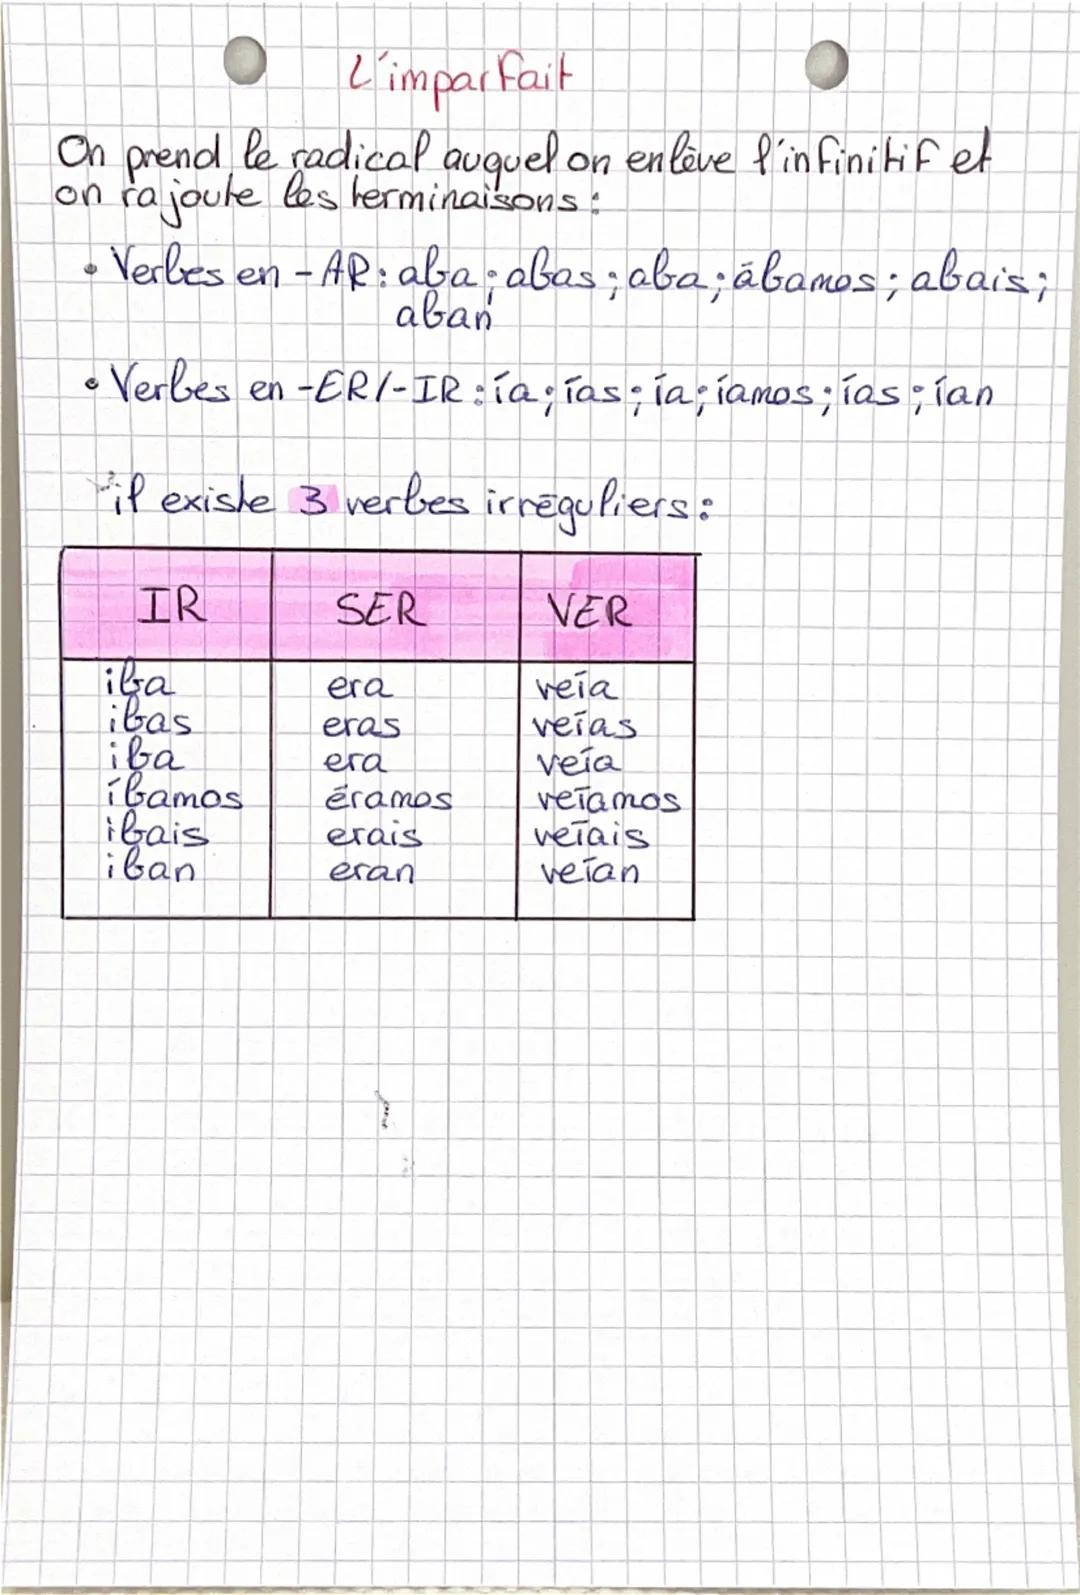 L'imparfait
On prend le radical auquel on enlève l'infinitif et
on rajoute les terminaisons :
• Verbes en -AR : aba ; abas ; aba ; ábamos ; abais ;
aban
• Verbes en -ER/-IR : ía ; ías ; ía ; íamos ; ías ; ían
il existe 3 verbes irréguliers :
IR SER VER
iba era veía
ibas eras veías
iba era veía
íbamos éramos veíamos
ibais erais veíais
iban eran veían